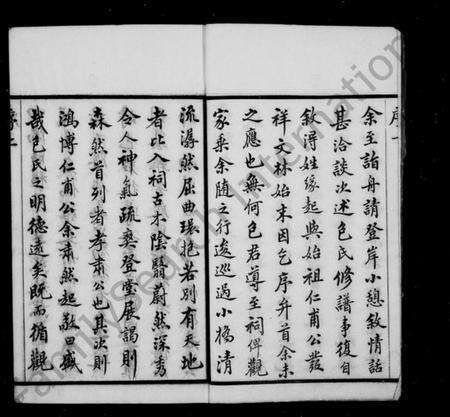 序一
余至詣舟請登岸小憩敘情話
甚洽談次述包氏修譜事復自
敘得姓緣起與始祖仁甫公發
祥文林始末因乞序弁首余未
之應也無何包君導至祠俾觀
家乘余隨之行逡巡過小橋清
流潺然屈曲環抱若別有天地
者比入祠古木陰翳蔚然深秀
令人神氣疏爽登堂展謁則
森然首列者孝肅公也其次則
鴻博仁甫公余肅然起敬曰盛
哉包氏之明德遠矣既而循觀
FamilySearch International